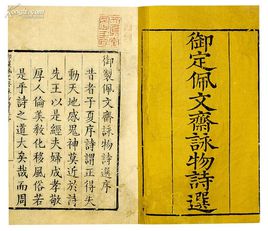 御定佩文齋詠物詩選
御製佩文齋詠物詩選序
昔者子夏序詩謂正得失
動天地感鬼神莫近於詩
先王以是經夫婦成孝敬
厚人倫美教化移風俗若
是乎詩之道大矣哉而周